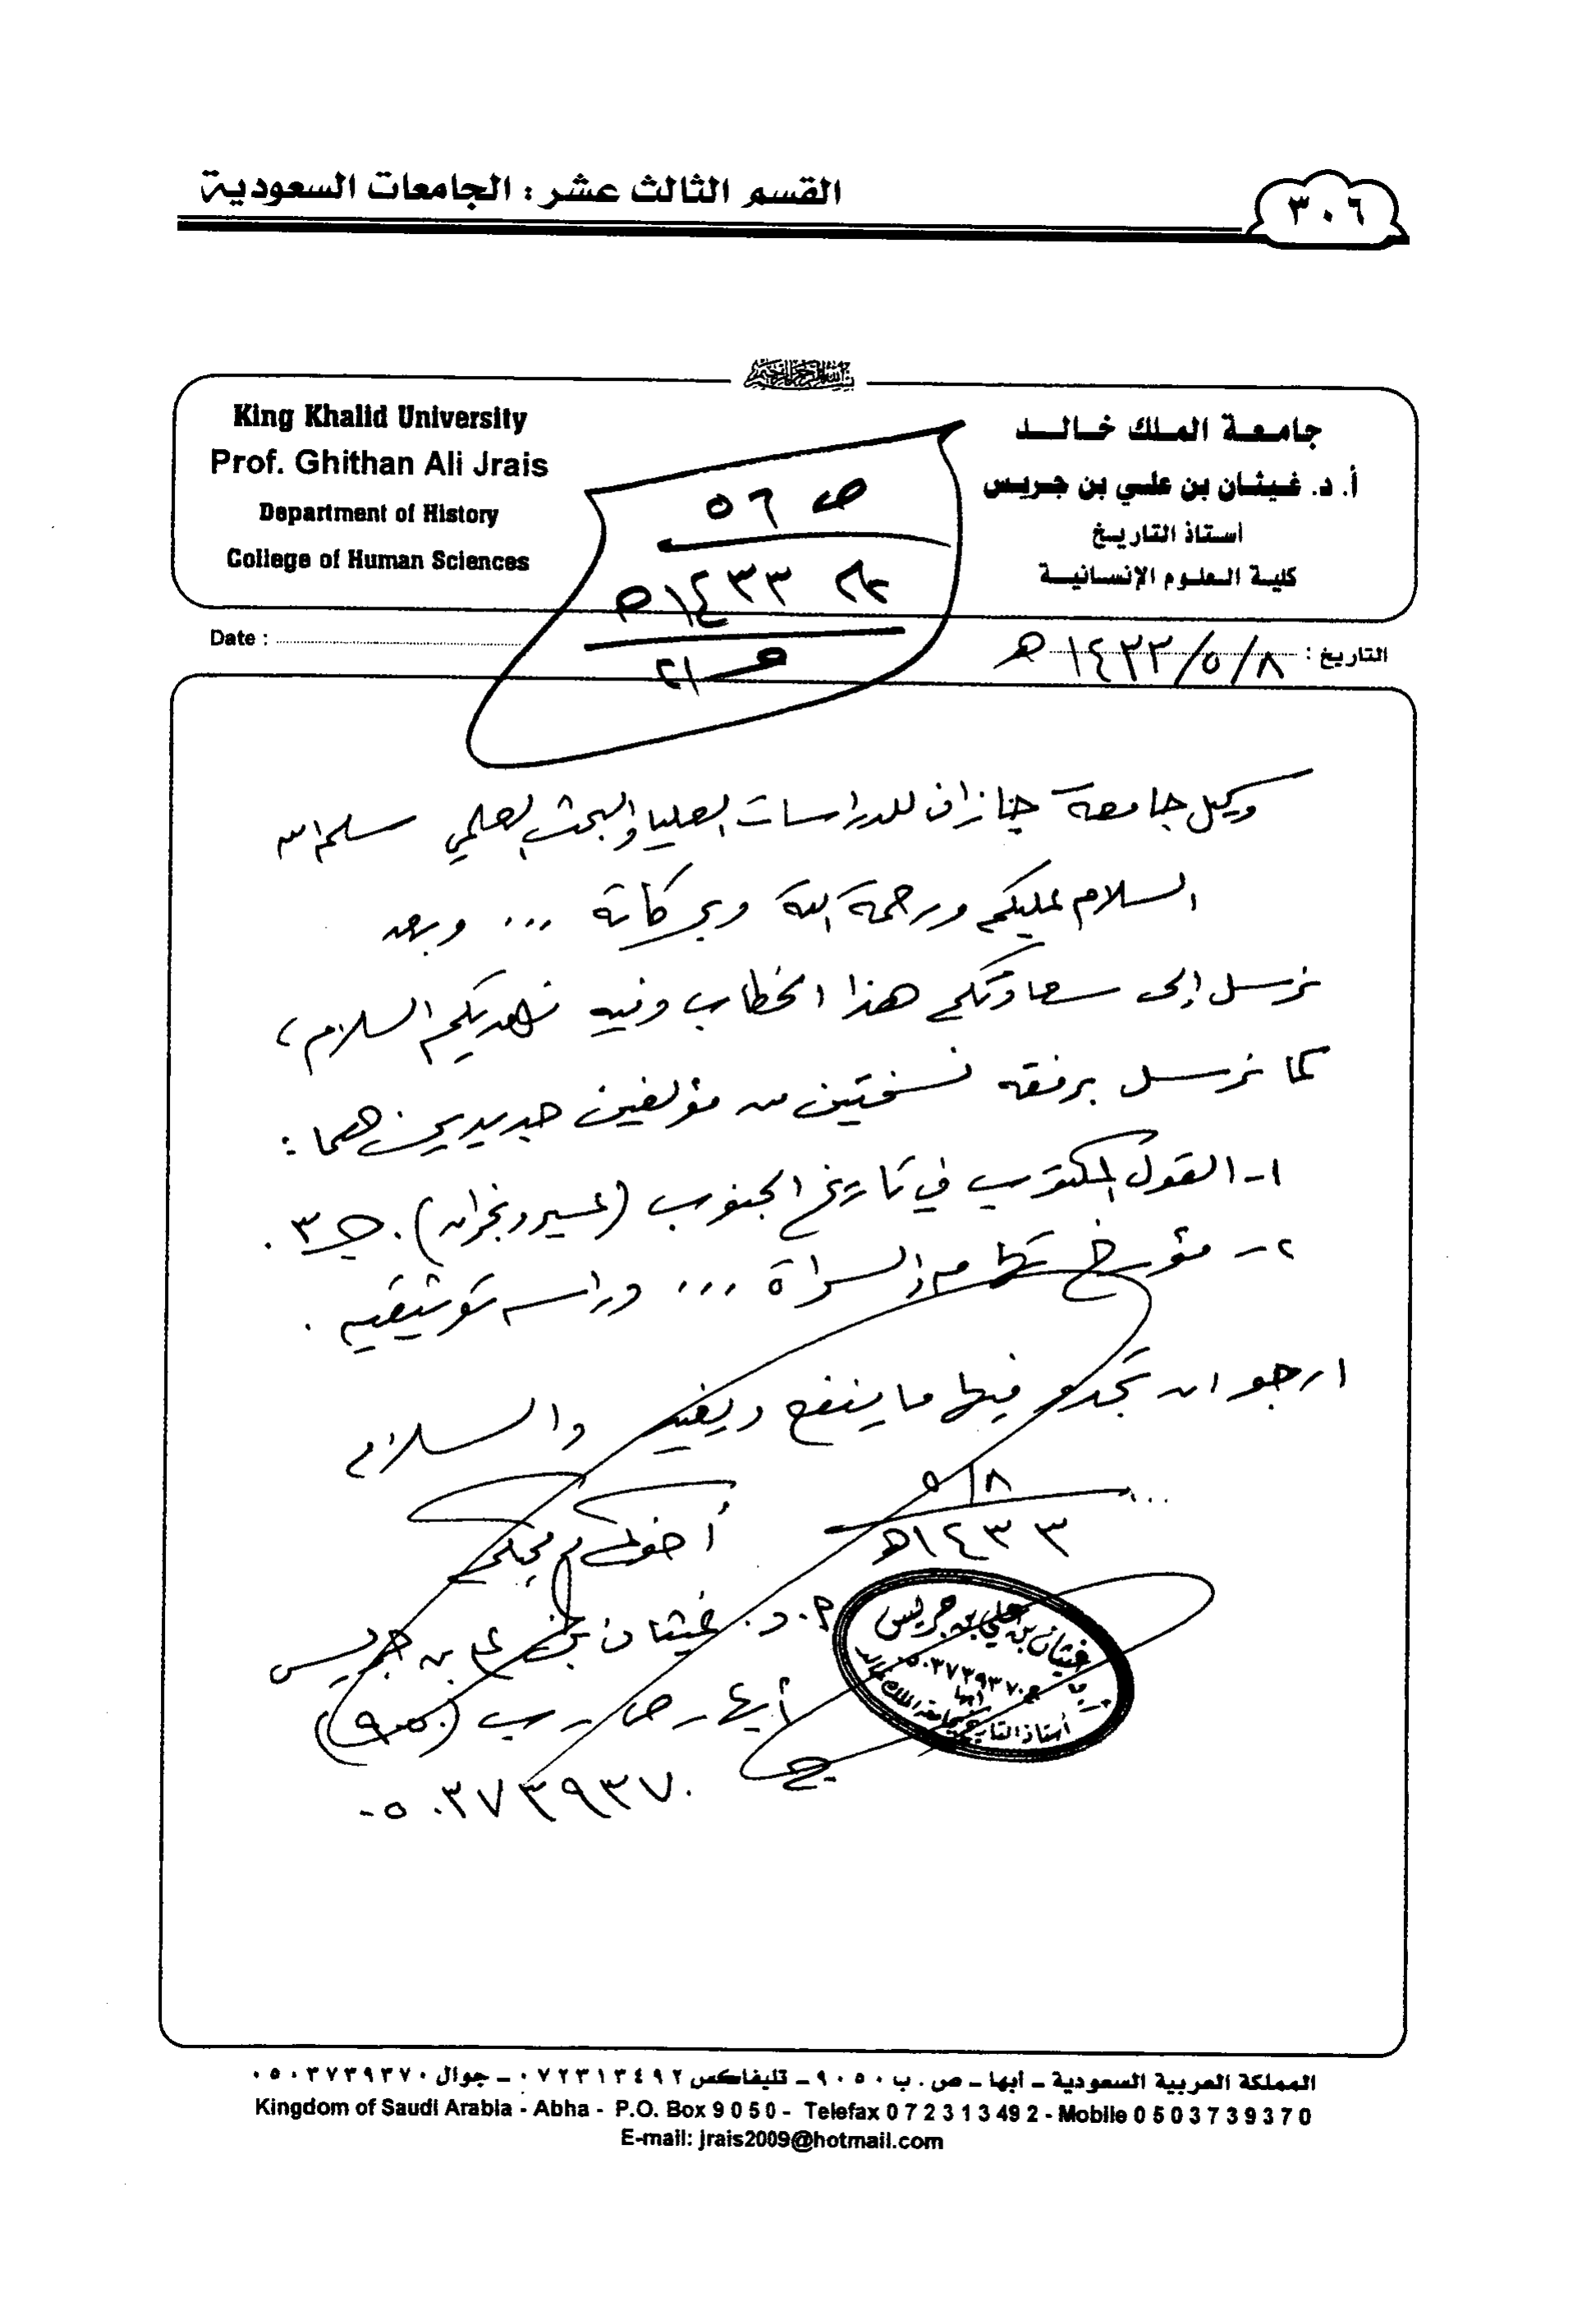 القسم الثالث عشر : الجامعات السعودية
٣٠٦
جامعة الملك خالد
أ. د. غيثان بن علي بن جريس
أستاذ التاريخ
كلية العلوم الإنسانية
King Khalid University
Prof. Ghithan Ali Jrais
Department of History
College of Human Sciences
ص ٥٦
١٤٣٣هـ
التاريخ : ٨/٥/١٤٣٣هـ
Date :
وكيل جامعة جازان للدراسات العليا والبحث العلمي سلمه الله
السلام عليكم ورحمة الله وبركاته ... وبعد
نرسل إلى سعادتكم هذا الخطاب وفيه نهديكم السلام ،
كما نرسل برفقه نسختين من مؤلفين جديدين هما :
١- القول المكتوب في تاريخ الجنوب (عسير ونجران). جـ٣ .
٢- مؤرخ تهامة والسراة ... دراسة توثيقية .
ارجو ان تجدو فيها ما ينفع ويفيد والسلام
... ٨/٥
١٤٣٣هـ
أخوكم ومحبكم
أ.د. غيثان بن علي بن جريس
أبها - ص. ب (٩٠٥٠)
٠٥٠٣٧٣٩٣٧٠
غيثان بن علي بن جريس
٠٥٠٣٧٣٩٣٧٠
أبها
أستاذ التاريخ بجامعة الملك خالد
المملكة العربية السعودية - أبها - ص . ب ٩٠٥٠ - تليفاكس ٠٧٢٣١٣٤٩٢ - جوال ٠٥٠٣٧٣٩٣٧٠
Kingdom of Saudi Arabia - Abha - P.O. Box 9 0 5 0 - Telefax 0 7 2 3 1 3 49 2 - Mobile 0 5 0 3 7 3 9 3 7 0
E-mail: jrais2009@hotmail.com